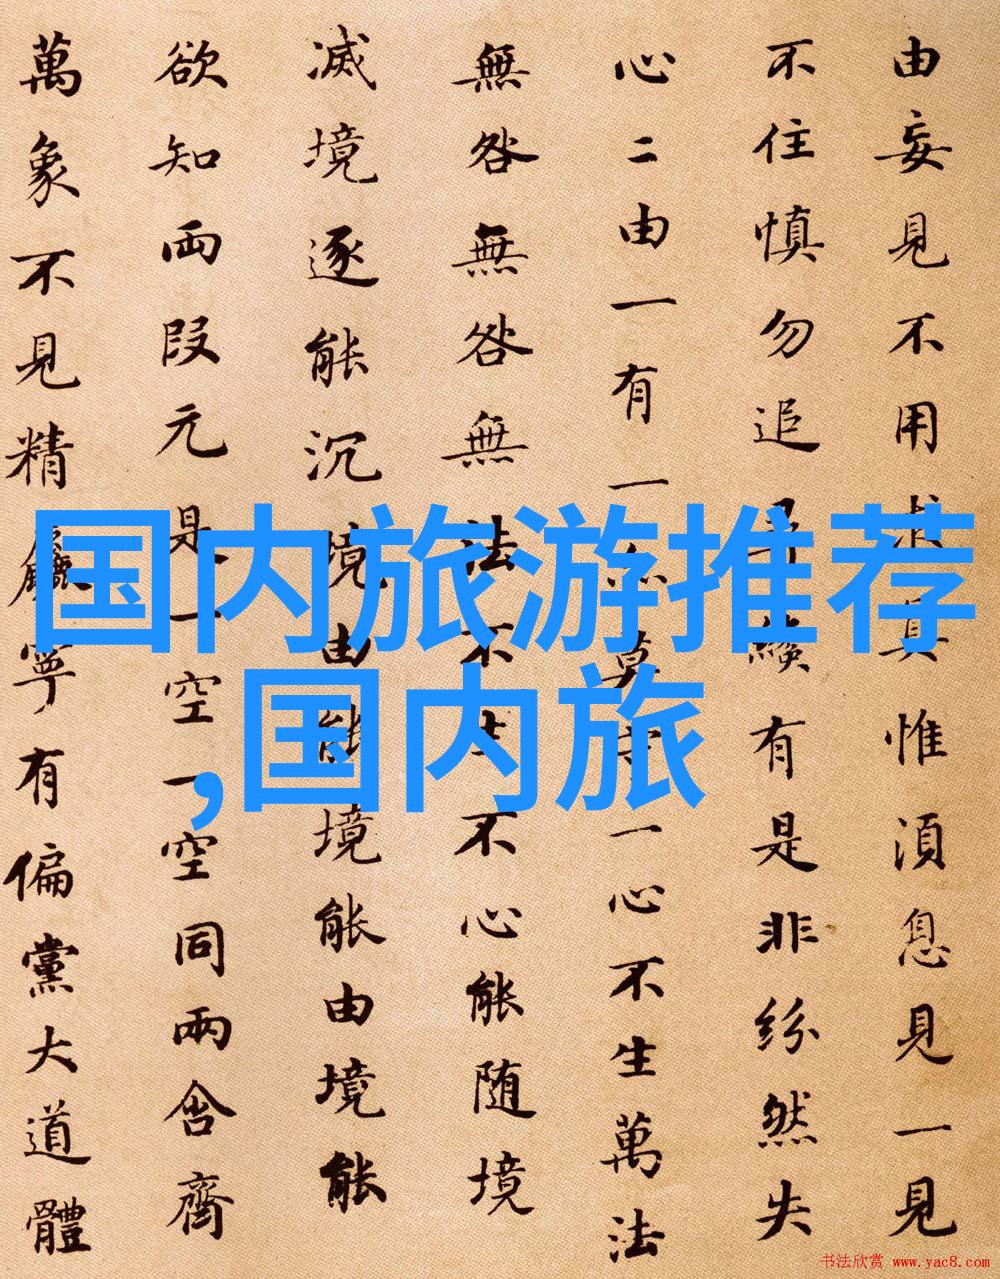 由妄見不用求真惟湏息見一見
不住慎勿追尋纔有是非紛然失
心二由一有一亦莫守一心不生萬法
無咎無咎無法不生不心能随境
滅境逐能沉境由能境能由境能
欲知兩段元是一空一空同兩含齊
萬象不見精麤寧有偏黨大道體
国内旅游推荐
,国内旅
书法欣赏 www.yac8.com